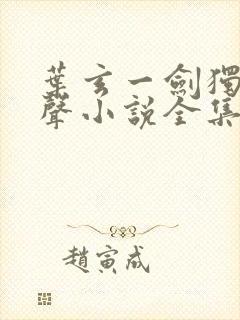 葉玄一劍獨
聲小說全集
趙寅成